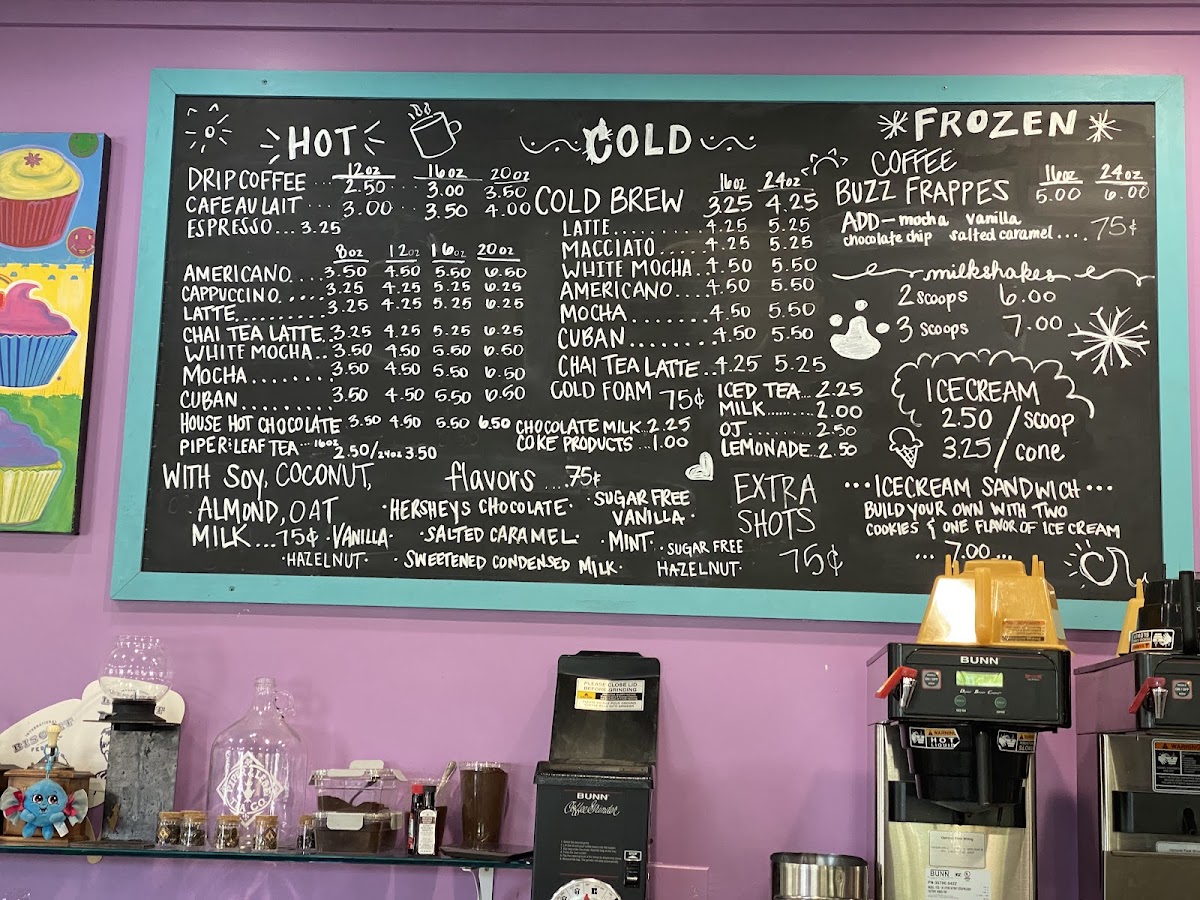 HOT
12oz 16oz 20oz
DRIP COFFEE ... 2.50 3.00 3.50
CAFE AU LAIT ... 3.00 3.50 4.00
ESPRESSO... 3.25
8oz 12oz 16oz 20oz
AMERICANO....3.50 4.50 5.50 6.50
CAPPUCCINO.....3.25 4.25 5.25 6.25
LATTE........3.25 4.25 5.25 6.25
CHAI TEA LATTE..3.25 4.25 5.25 6.25
WHITE MOCHA..3.50 4.50 5.50 6.50
MOCHA........3.50 4.50 5.50 6.50
CUBAN.........3.50 4.50 5.50 6.50
HOUSE HOT CHOCOLATE 3.50 4.50 5.50 6.50
PIPER & LEAF TEA...16oz 2.50/24oz 3.50
WITH SOY, COCONUT,
ALMOND, OAT
MILK...75¢
COLD
16oz 24oz
COLD BREW 3.25 4.25
LATTE........4.25 5.25
MACCIATO....4.25 5.25
WHITE MOCHA..4.50 5.50
AMERICANO....4.50 5.50
MOCHA........4.50 5.50
CUBAN........4.50 5.50
CHAI TEA LATTE..4.25 5.25
COLD FOAM 75¢
CHOCOLATE MILK.2.25
COKE PRODUCTS...1.00
ICED TEA...2.25
MILK........2.00
OJ........2.50
LEMONADE..2.50
flavors ...75¢
·HERSHEYS CHOCOLATE· SUGAR FREE
VANILLA·
·VANILLA· ·SALTED CARAMEL· ·MINT·
·HAZELNUT· ·SWEETENED CONDENSED MILK·
SUGAR FREE
HAZELNUT·
EXTRA
SHOTS
75¢
FROZEN
COFFEE
16oz 24oz
BUZZ FRAPPES 5.00 6.00
ADD - mocha vanilla
chocolate chip salted caramel....75¢
milkshakes
2 scoops 6.00
3 scoops 7.00
ICECREAM
2.50 / scoop
3.25 / cone
...ICECREAM SANDWICH...
BUILD YOUR OWN WITH TWO
COOKIES & ONE FLAVOR OF ICE CREAM
...7.00...
PLEASE CLOSE LID
BEFORE GRINDING
BUNN
Coffee Grinder
BUNN
WARNING
HOT
BUNN
WARNING